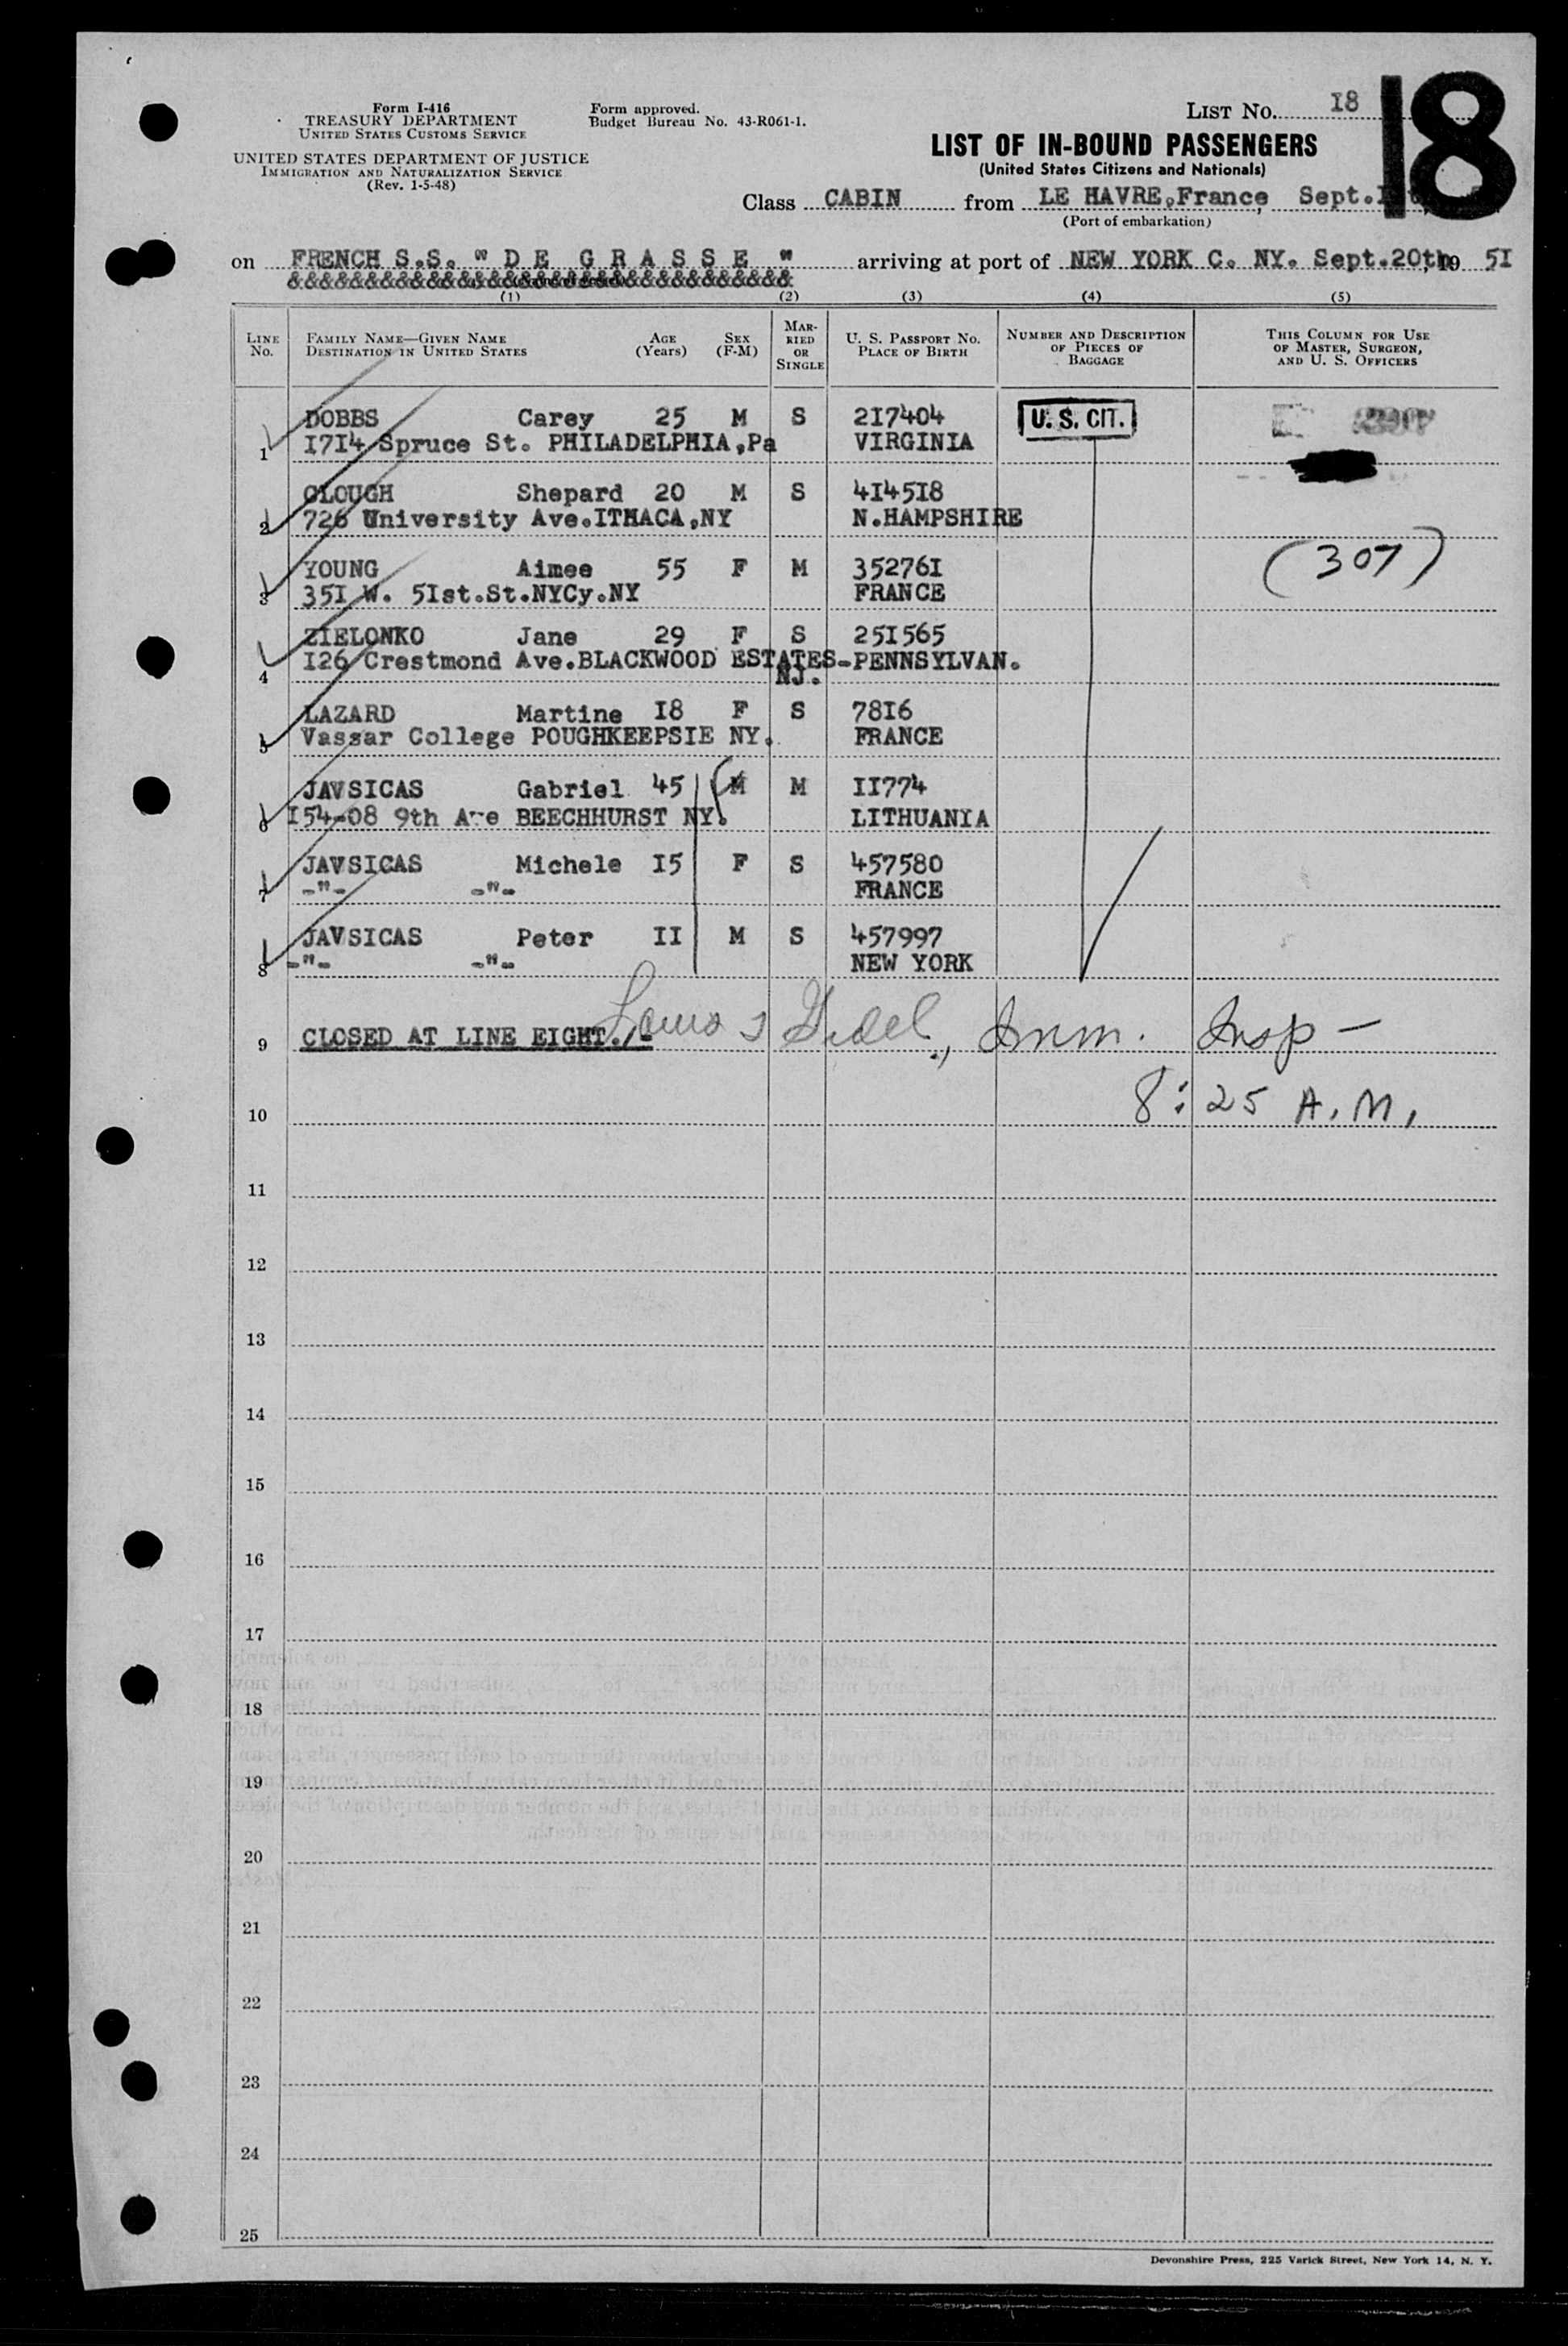 Form I-416
TREASURY DEPARTMENT
UNITED STATES CUSTOMS SERVICE
UNITED STATES DEPARTMENT OF JUSTICE
IMMIGRATION AND NATURALIZATION SERVICE
(Rev. 1-5-48)
Form approved.
Budget Bureau No. 43-R061-1.
LIST No. I8
18
LIST OF IN-BOUND PASSENGERS
(United States Citizens and Nationals)
Class CABIN from LE HAVRE,France, Sept.
(Port of embarkation)
on FRENCH S.S. " D E G R A S S E " arriving at port of NEW YORK C. NY. Sept.20th, 19 5I
&&&&&&&&&&&&&&&&&&&&&&&&&&&&&&&&
(1) (2) (3) (4) (5)
LINE No. FAMILY NAME—GIVEN NAME DESTINATION IN UNITED STATES AGE (Years) SEX (F-M) MARRIED OR SINGLE U. S. PASSPORT No. PLACE OF BIRTH NUMBER AND DESCRIPTION OF PIECES OF BAGGAGE THIS COLUMN FOR USE OF MASTER, SURGEON, AND U. S. OFFICERS
DOBBS Carey 25 M S 2I7404 U. S. CIT.
1 I7I4 Spruce St. PHILADELPHIA,Pa VIRGINIA
CLOUGH Shepard 20 M S 4I45I8
2 726 University Ave.ITHACA,NY N.HAMPSHIRE
YOUNG Aimee 55 F M 35276I (307)
3 35I W. 5Ist.St.NYCy.NY FRANCE
ZIELONKO Jane 29 F S 25I565
4 I26 Crestmond Ave.BLACKWOOD ESTATES-PENNSYLVAN.
NJ.
LAZARD Martine I8 F S 78I6
5 Vassar College POUGHKEEPSIE NY. FRANCE
JAVSICAS Gabriel 45 M M II774
6 I54-08 9th Ave BEECHHURST NY. LITHUANIA
JAVSICAS Michele I5 F S 457580
7 -"- -"- FRANCE
JAVSICAS Peter II M S 457997
8 -"- -"- NEW YORK
9 CLOSED AT LINE EIGHT./- Imm. Insp —
10 8:25 A.M.
11
12
13
14
15
16
17
18
19
20
21
22
23
24
25
Devonshire Press, 225 Varick Street, New York 14, N. Y.